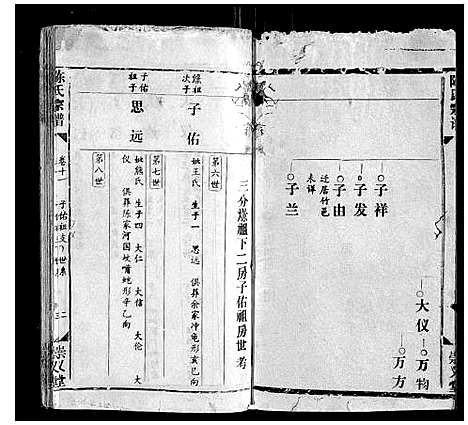 陈氏宗谱
大仪
万物
万方
崇义堂
子祥
子发
子由
迁居竹邑
未详
子兰
三分缘祖下二房子佑祖房世考
缘祖次子
子佑
第六世
妣王氏 生子一 思远 俱葬余家冲龟形亥巳向
子佑祖子
思远
第七世
妣熊氏 生子四 大仁 大信 大伦 大仪 俱葬陈家河国坟嘴蛇形辛乙向
第八世
陈氏宗谱
卷十一
子佑祖支下世系
崇义堂